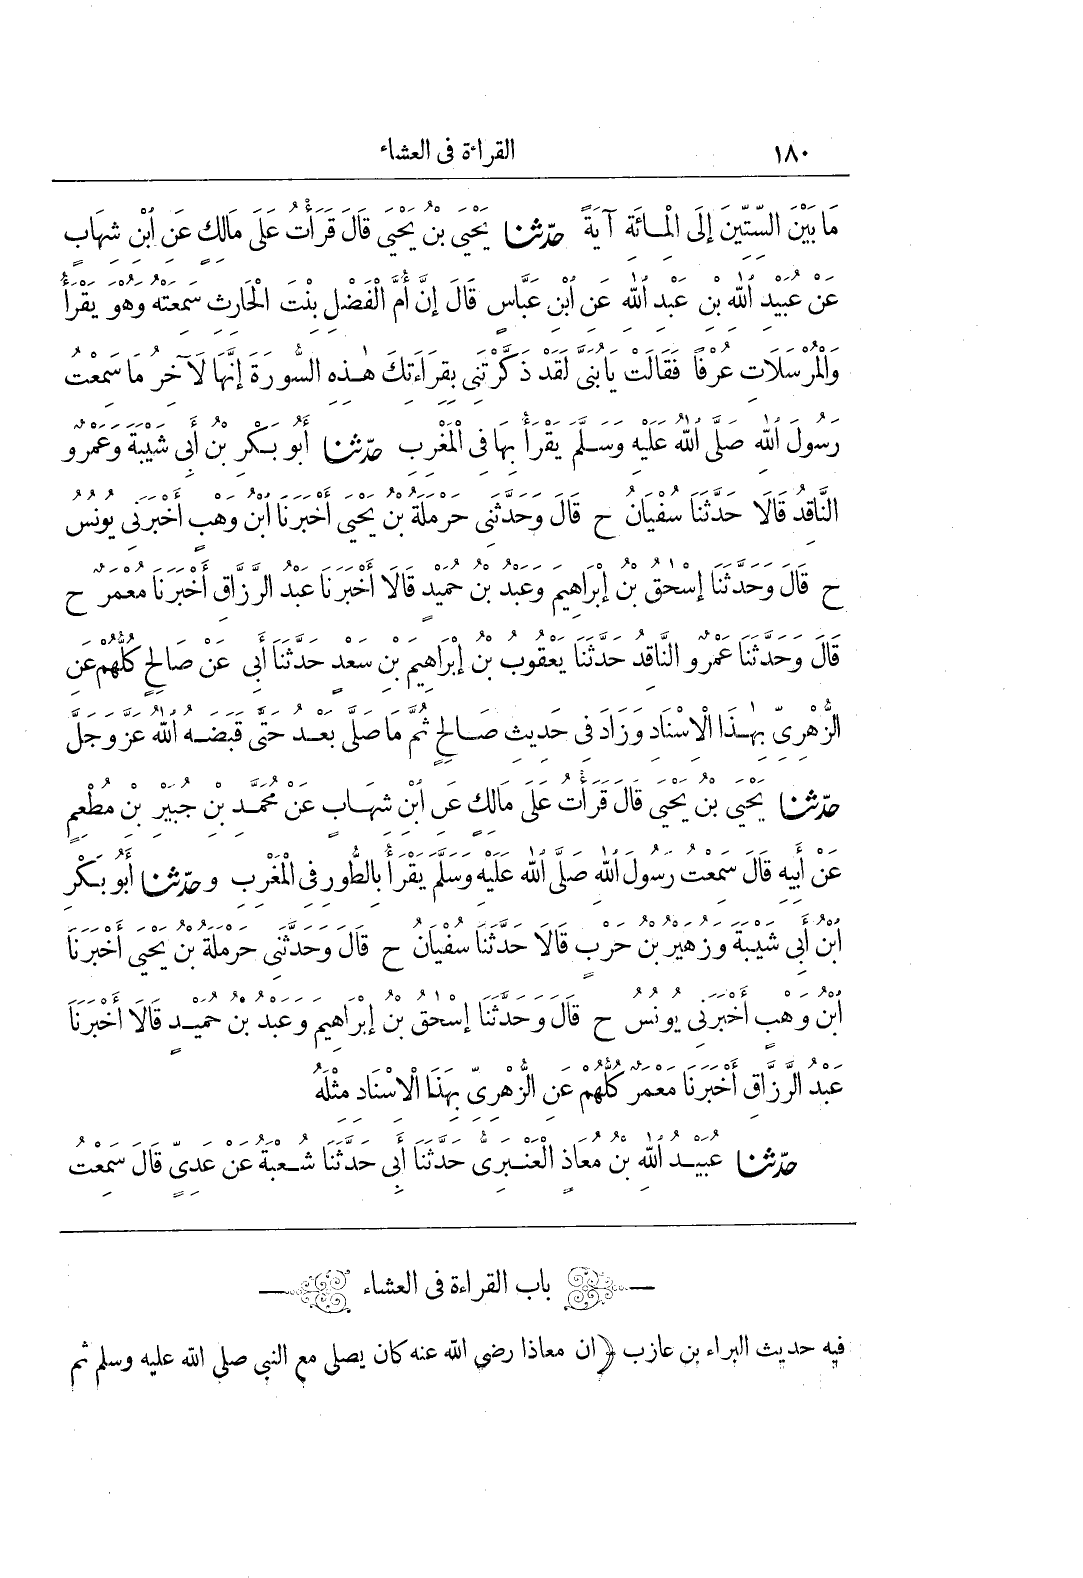 ١٨٠ القراءة فى العشاء
مَا بَيْنَ السِّتِّينَ إِلَى الْمِائَةِ آيَةً حدّثنا يَحْيَى بْنُ يَحْيَى قَالَ قَرَأْتُ عَلَى مَالِكٍ عَنِ ابْنِ شِهَابٍ
عَنْ عُبَيْدِ اللهِ بْنِ عَبْدِ اللهِ عَنِ ابْنِ عَبَّاسٍ قَالَ إِنَّ أُمَّ الْفَضْلِ بِنْتَ الْحَارِثِ سَمِعَتْهُ وَهُوَ يَقْرَأُ
وَالْمُرْسَلَاتِ عُرْفًا فَقَالَتْ يَابُنَىَّ لَقَدْ ذَكَّرْتَنِى بِقِرَاءَتِكَ هٰذِهِ السُّورَةَ إِنَّهَا لَآخِرُ مَا سَمِعْتُ
رَسُولَ اللهِ صَلَّى اللهُ عَلَيْهِ وَسَلَّمَ يَقْرَأُ بِهَا فِى الْمَغْرِبِ حدّثنا أَبُو بَكْرِ بْنُ أَبِى شَيْبَةَ وَعَمْرٌو
النَّاقِدُ قَالَا حَدَّثَنَا سُفْيَانُ ح قَالَ وَحَدَّثَنِى حَرْمَلَةُ بْنُ يَحْيَى أَخْبَرَنَا ابْنُ وَهْبٍ أَخْبَرَنِى يُونُسُ
ح قَالَ وَحَدَّثَنَا إِسْحٰقُ بْنُ إِبْرَاهِيمَ وَعَبْدُ بْنُ حُمَيْدٍ قَالَا أَخْبَرَنَا عَبْدُ الرَّزَّاقِ أَخْبَرَنَا مَعْمَرٌ ح
قَالَ وَحَدَّثَنَا عَمْرٌو النَّاقِدُ حَدَّثَنَا يَعْقُوبُ بْنُ إِبْرَاهِيمَ بْنِ سَعْدٍ حَدَّثَنَا أَبِى عَنْ صَالِحٍ كُلُّهُمْ عَنِ
الزُّهْرِىِّ بِهٰذَا الْإِسْنَادِ وَزَادَ فِى حَدِيثِ صَالِحٍ ثُمَّ مَا صَلَّى بَعْدُ حَتَّى قَبَضَهُ اللهُ عَزَّ وَجَلَّ
حدّثنا يَحْيَى بْنُ يَحْيَى قَالَ قَرَأْتُ عَلَى مَالِكٍ عَنِ ابْنِ شِهَابٍ عَنْ مُحَمَّدِ بْنِ جُبَيْرِ بْنِ مُطْعِمٍ
عَنْ أَبِيهِ قَالَ سَمِعْتُ رَسُولَ اللهِ صَلَّى اللهُ عَلَيْهِ وَسَلَّمَ يَقْرَأُ بِالطُّورِ فِى الْمَغْرِبِ وحدّثنا أَبُو بَكْرِ
ابْنُ أَبِى شَيْبَةَ وَزُهَيْرُ بْنُ حَرْبٍ قَالَا حَدَّثَنَا سُفْيَانُ ح قَالَ وَحَدَّثَنِى حَرْمَلَةُ بْنُ يَحْيَى أَخْبَرَنَا
ابْنُ وَهْبٍ أَخْبَرَنِى يُونُسُ ح قَالَ وَحَدَّثَنَا إِسْحٰقُ بْنُ إِبْرَاهِيمَ وَعَبْدُ بْنُ حُمَيْدٍ قَالَا أَخْبَرَنَا
عَبْدُ الرَّزَّاقِ أَخْبَرَنَا مَعْمَرٌ كُلُّهُمْ عَنِ الزُّهْرِىِّ بِهَذَا الْإِسْنَادِ مِثْلَهُ
حدّثنا عُبَيْدُ اللهِ بْنُ مُعَاذٍ الْعَنْبَرِىُّ حَدَّثَنَا أَبِى حَدَّثَنَا شُعْبَةُ عَنْ عَدِىٍّ قَالَ سَمِعْتُ
باب القراءة فى العشاء
فيه حديث البراء بن عازب (ان معاذا رضي الله عنه كان يصلى مع النبي صلى الله عليه وسلم ثم